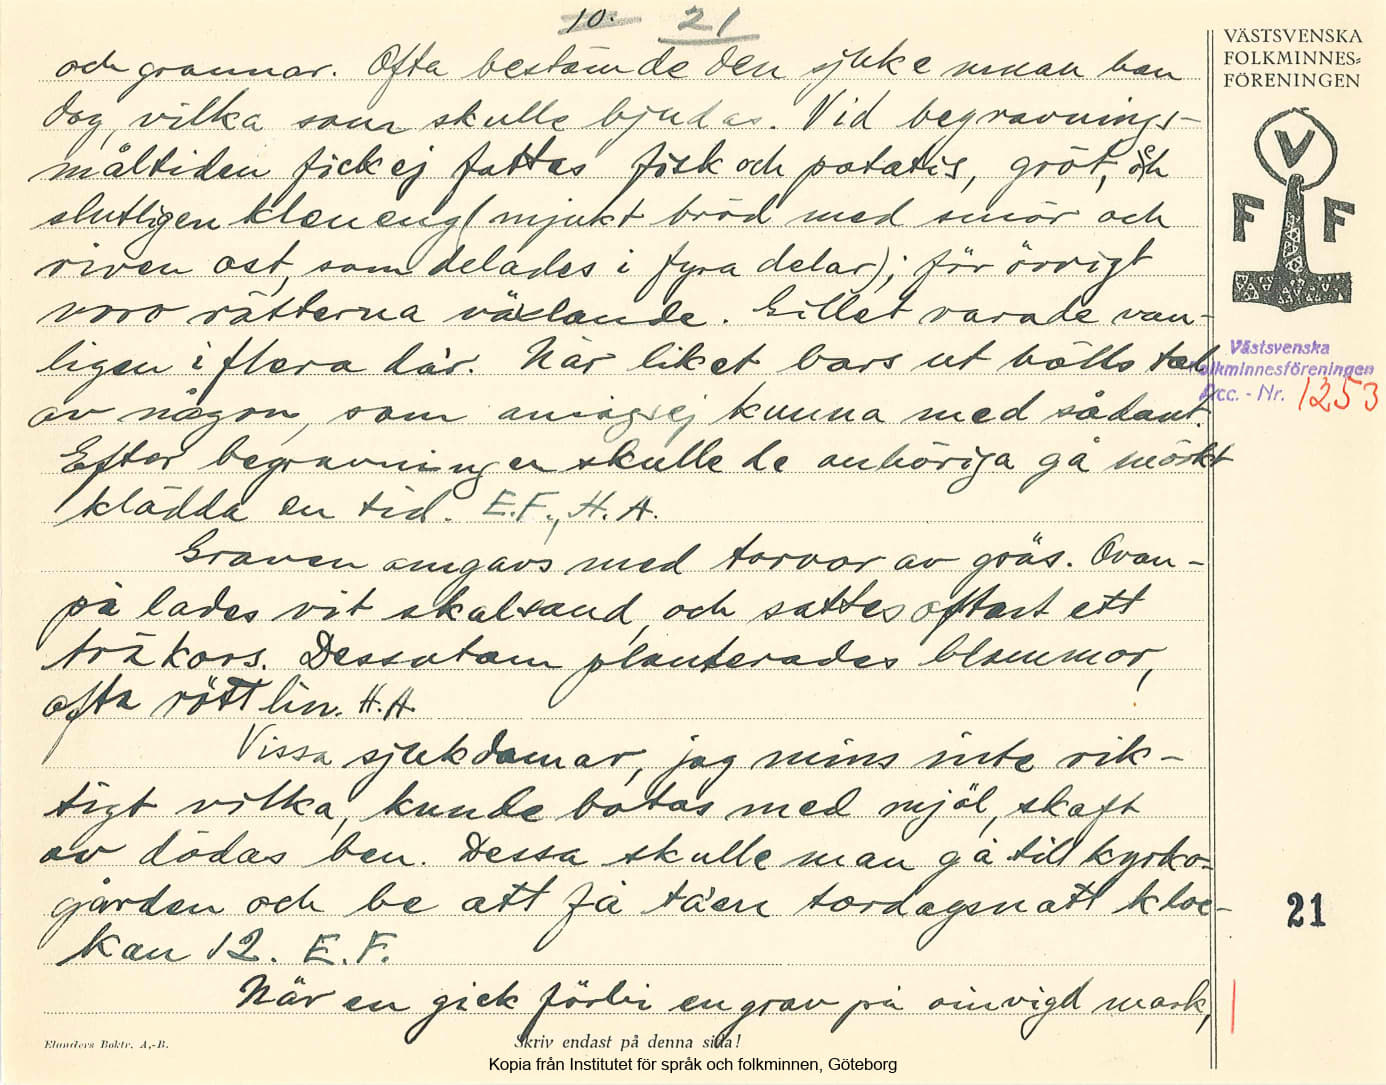 10. 21
och grannar. Ofta bestämde den sjuke innan han
dog, vilka som skulle bjudas. Vid begravnings-
måltiden fick ej fattas fisk och potatis, gröt, och
slutligen kleneng (mjukt bröd med smör och
riven ost, som delades i fyra delar); för övrigt
voro rätterna växlande. Gillet varade van-
ligen i flera da'r. När liket bars ut hölls tal
av någon, som ansågs ej kunna med sådant.
Efter begravningen skulle de anhöriga gå mörkt
klädda en tid. E.F., H.A.
Graven omgavs med torvor av gräs. Ovan-
på lades vit skalsand, och sattes oftast ett
träkors. Dessutom planterades blommor,
ofta rött lin. H.A.
Vissa sjukdomar, jag mins inte rik-
tigt vilka, kunde botas med mjöl, skaft
av dödas ben. Dessa skulle man gå till kyrko-
gården och be att få ta'en tordagsnatt kloc-
kan 12. E.F.
När en gick förbi en grav på oinvigd mark,
VÄSTSVENSKA
FOLKMINNES-
FÖRENINGEN
V
F F
Västsvenska
Folkminnesföreningen
Acc. - Nr. 1253
21
Elanders Boktr. A.-B.
Skriv endast på denna sida!
Kopia från Institutet för språk och folkminnen, Göteborg